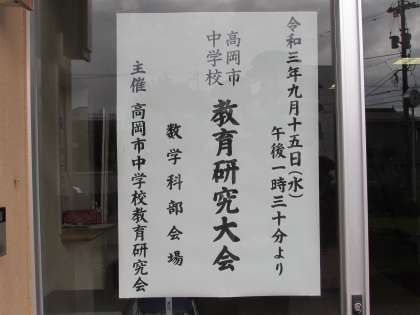 令和三年九月十五日(水)
午後一時三十分より
高岡市
中学校
教育研究大会
数学科部会場
主催 高岡市中学校教育研究会